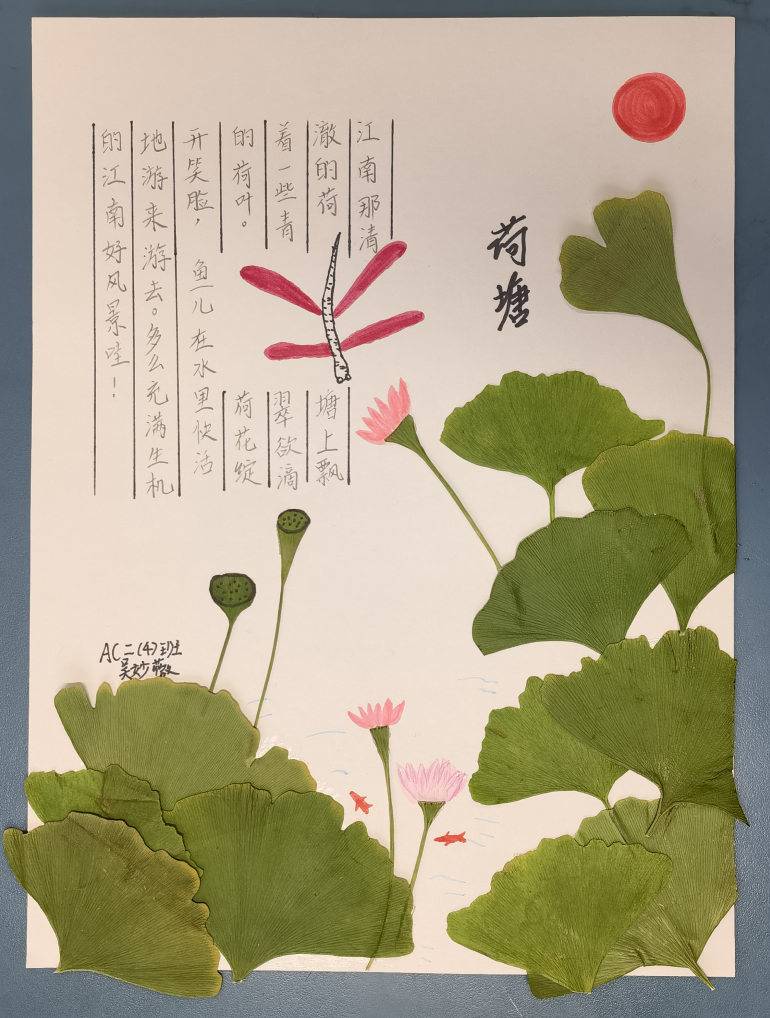 荷塘
江南那清
澈的荷塘上飘
着一些青翠欲滴
的荷叶。荷花绽
开笑脸，鱼儿在水里快活
地游来游去。多么充满生机
的江南好风景哇！
AC二(4)班
吴妙薇